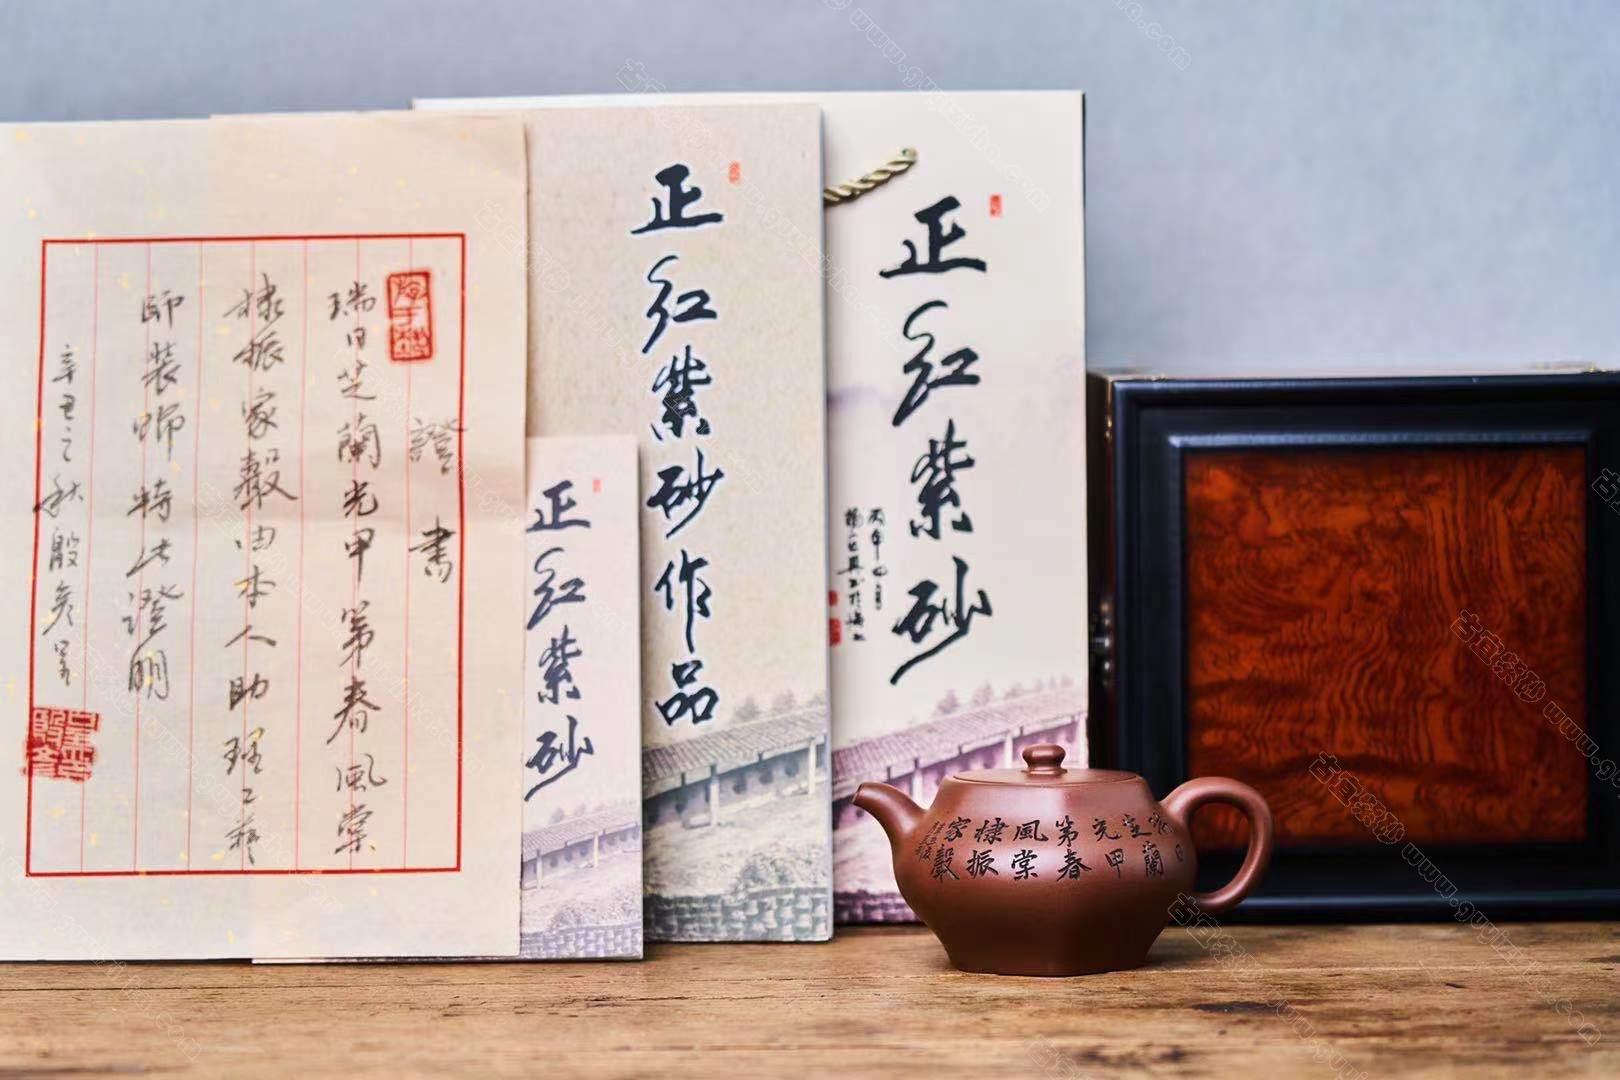 證書
瑞日芝蘭光甲第春風棠
棣振家聲由本人助理工藝
師裝飾特此證明
辛丑之秋殷彥罡
正紅紫砂
正紅紫砂作品
正紅紫砂
家棣風第光
聲振棠春甲蘭日
古宜紫砂 www.guyizisha.com